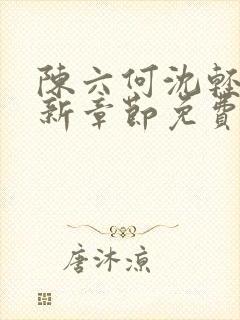 陳六何沈輕
新章節免費
唐沐涼